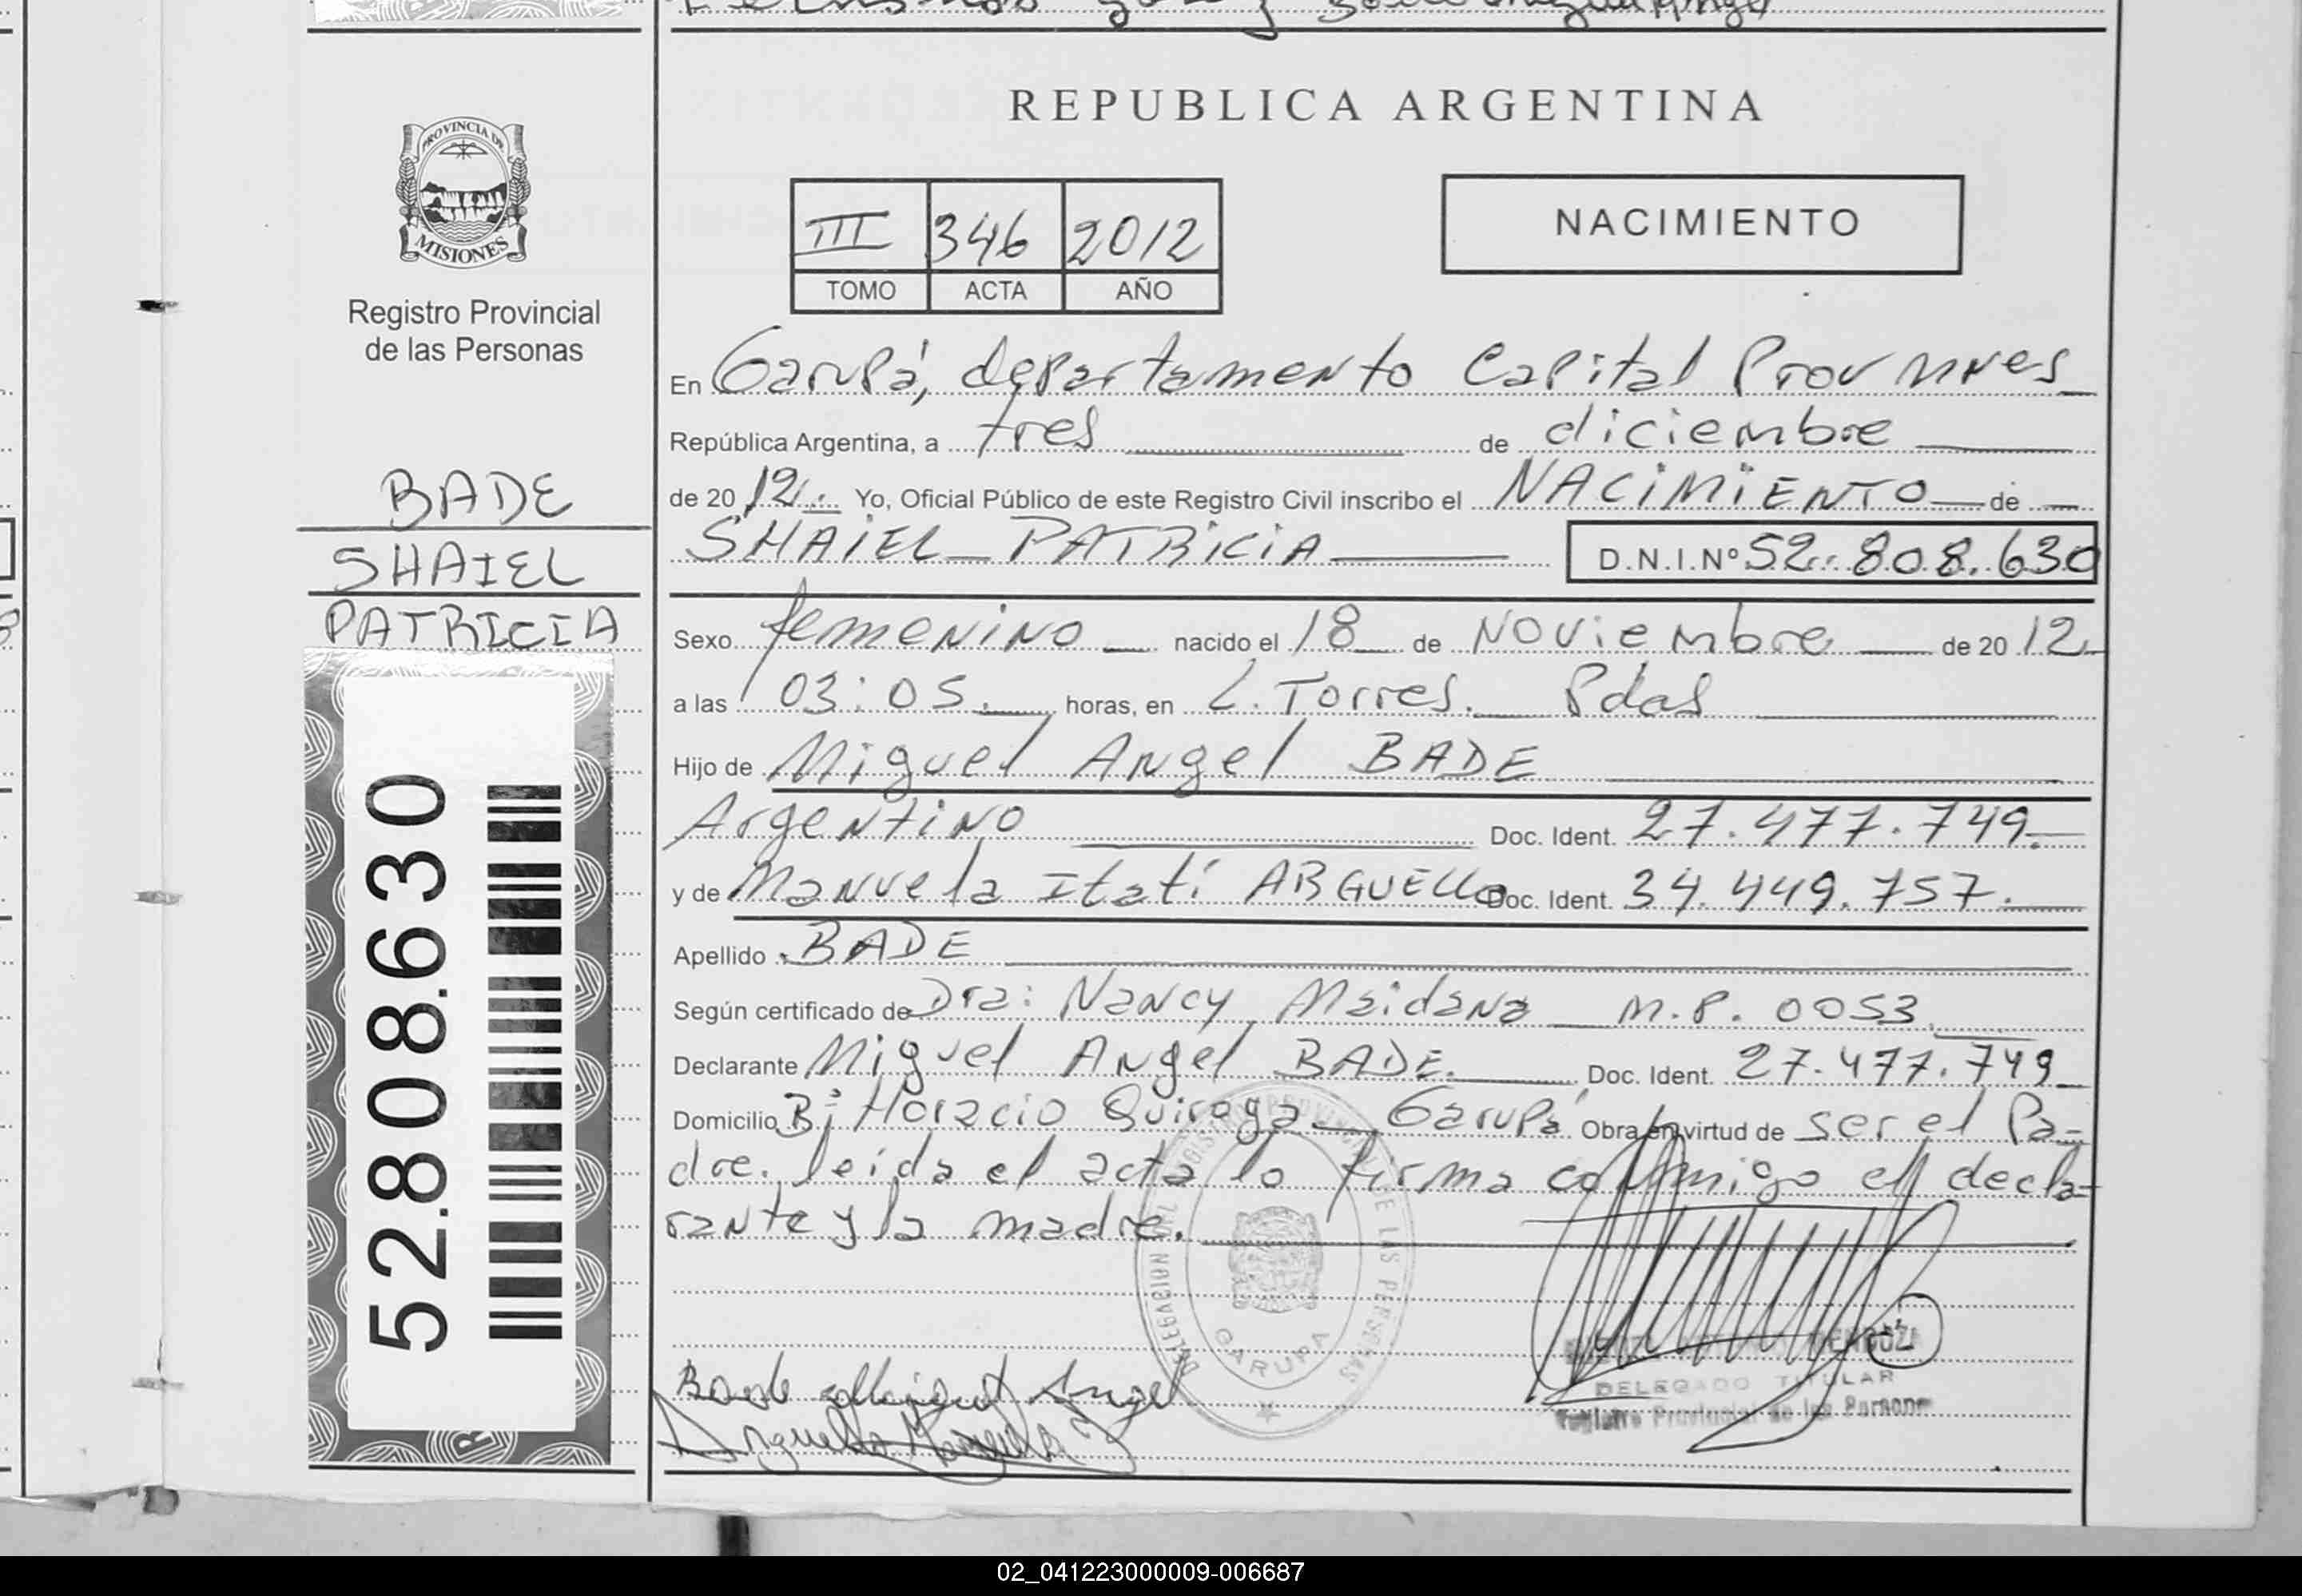 REPUBLICA ARGENTINA
PROVINCIA DE
MISIONES
Registro Provincial
de las Personas
III 346 2012
TOMO ACTA AÑO
NACIMIENTO
BADE
SHAIEL
PATRICIA
52.808.630
En Garupá, departamento Capital Prov Mnes
República Argentina, a tres de diciembre
de 2012. Yo, Oficial Público de este Registro Civil inscribo el NACIMIENTO de
SHAIEL PATRICIA D.N.I.Nº 52.808.630
Sexo femenino nacido el 18 de Noviembre de 2012
a las 03:05. horas, en L. Torres. Pdas
Hijo de Miguel Angel BADE
Argentino Doc. Ident. 27.477.749.
y de Manuela Itatí ARGUELLO Doc. Ident. 34.449.757.
Apellido BADE
Según certificado de Dra: Nancy Maidana M.P. 0053.
Declarante Miguel Angel BADE. Doc. Ident. 27.477.749
Domicilio Bº Horacio Quiroga Garupá Obra en virtud de ser el Pa-
dre. leída el acta lo firma conmigo el decla-
rante y la madre.
DELEGACION REGISTRO PROVINCIAL DE LAS PERSONAS
GARUPA
MENDOZA
DELEGADO TITULAR
Registro Provincial de las Personas
Bade Miguel Angel
Arguello Manuela I
02_041223000009-006687